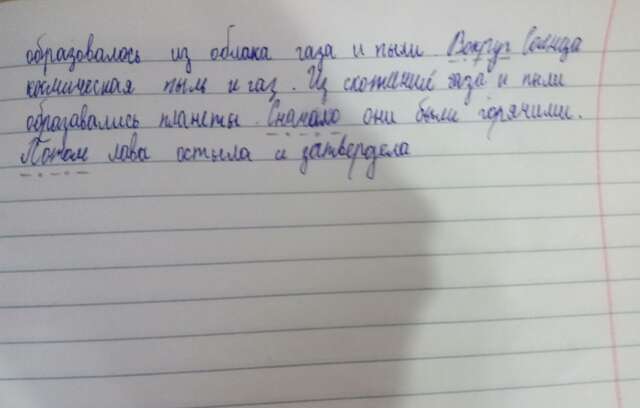 образовалось из облака газа и пыли Вокруг Солнца
космическая пыль и газ. Из скопений газа и пыли
образавались планеты. Сначало они были горячими.
Потом лава остыла и затвердела